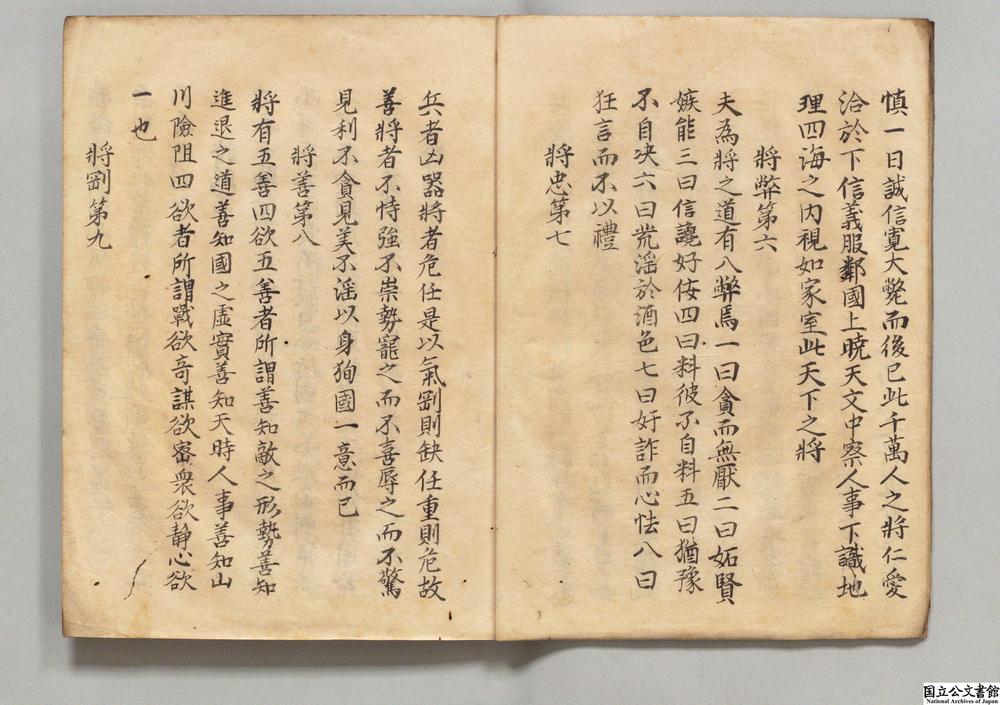 慎一日誠信寛大斃而後已此千萬人之將仁愛
洽於下信義服鄰國上曉天文中察人事下識地
理四海之内視如家室此天下之將
將弊第六
夫為將之道有八弊焉一曰貪而無厭二曰妬賢
嫉能三曰信讒好佞四曰料彼不自料五曰猶豫
不自决六曰荒淫於酒色七曰奸詐而心怯八曰
狂言而不以禮
將忠第七
兵者凶器將者危任是以氣剛則缺任重則危故
善將者不恃強不崇勢寵之而不喜辱之而不驚
見利不貪見美不淫以身狥國一意而已
將善第八
將有五善四欲五善者所謂善知敵之形勢善知
進退之道善知國之虚實善知天時人事善知山
川險阻四欲者所謂戰欲奇謀欲密衆欲静心欲
一也
將剛第九
国立公文書館
National Archives of Japan